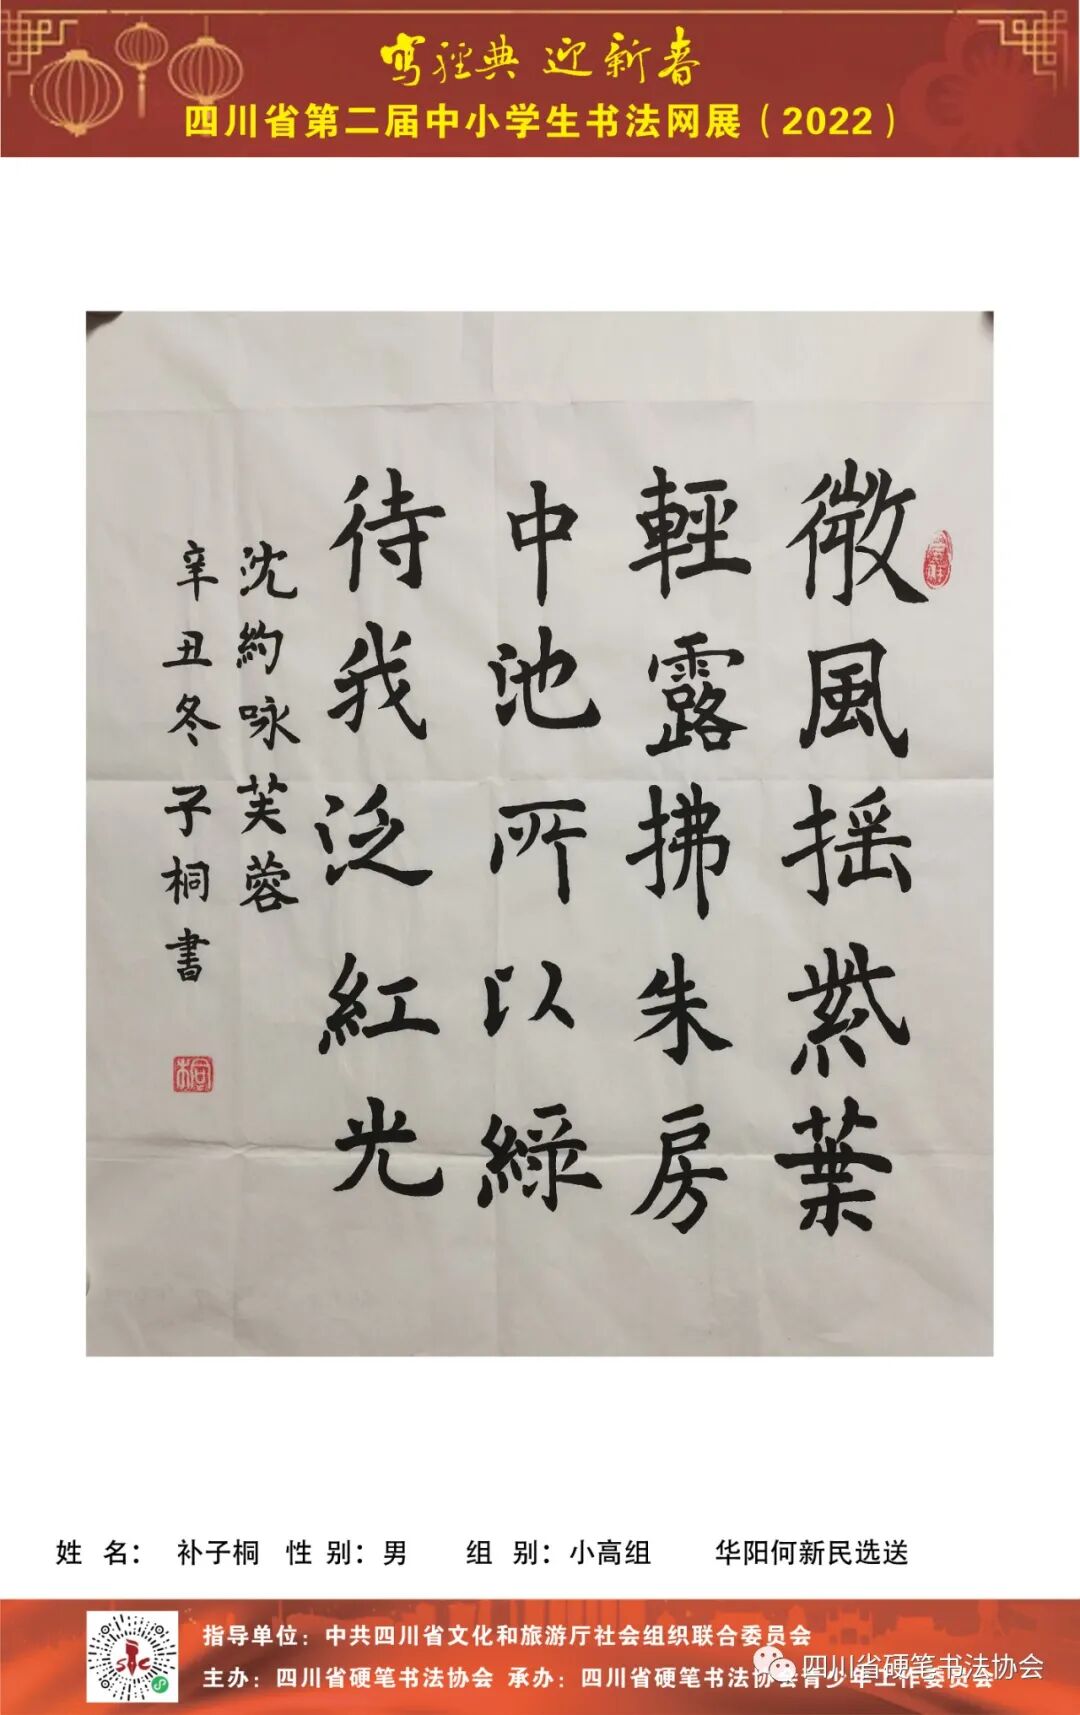 写經典 迎新春
四川省第二届中小学生书法网展（2022）
微風揺紫葉
輕露拂朱房
中池所以綠
待我泛紅光
沈約咏芙蓉
辛丑冬子桐書
桐
姓 名： 补子桐 性 别：男 组 别：小高组 华阳何新民选送
指导单位：中共四川省文化和旅游厅社会组织联合委员会
主办：四川省硬笔书法协会 承办：四川省硬笔书法协会青少年工作委员会
四川省硬笔书法协会